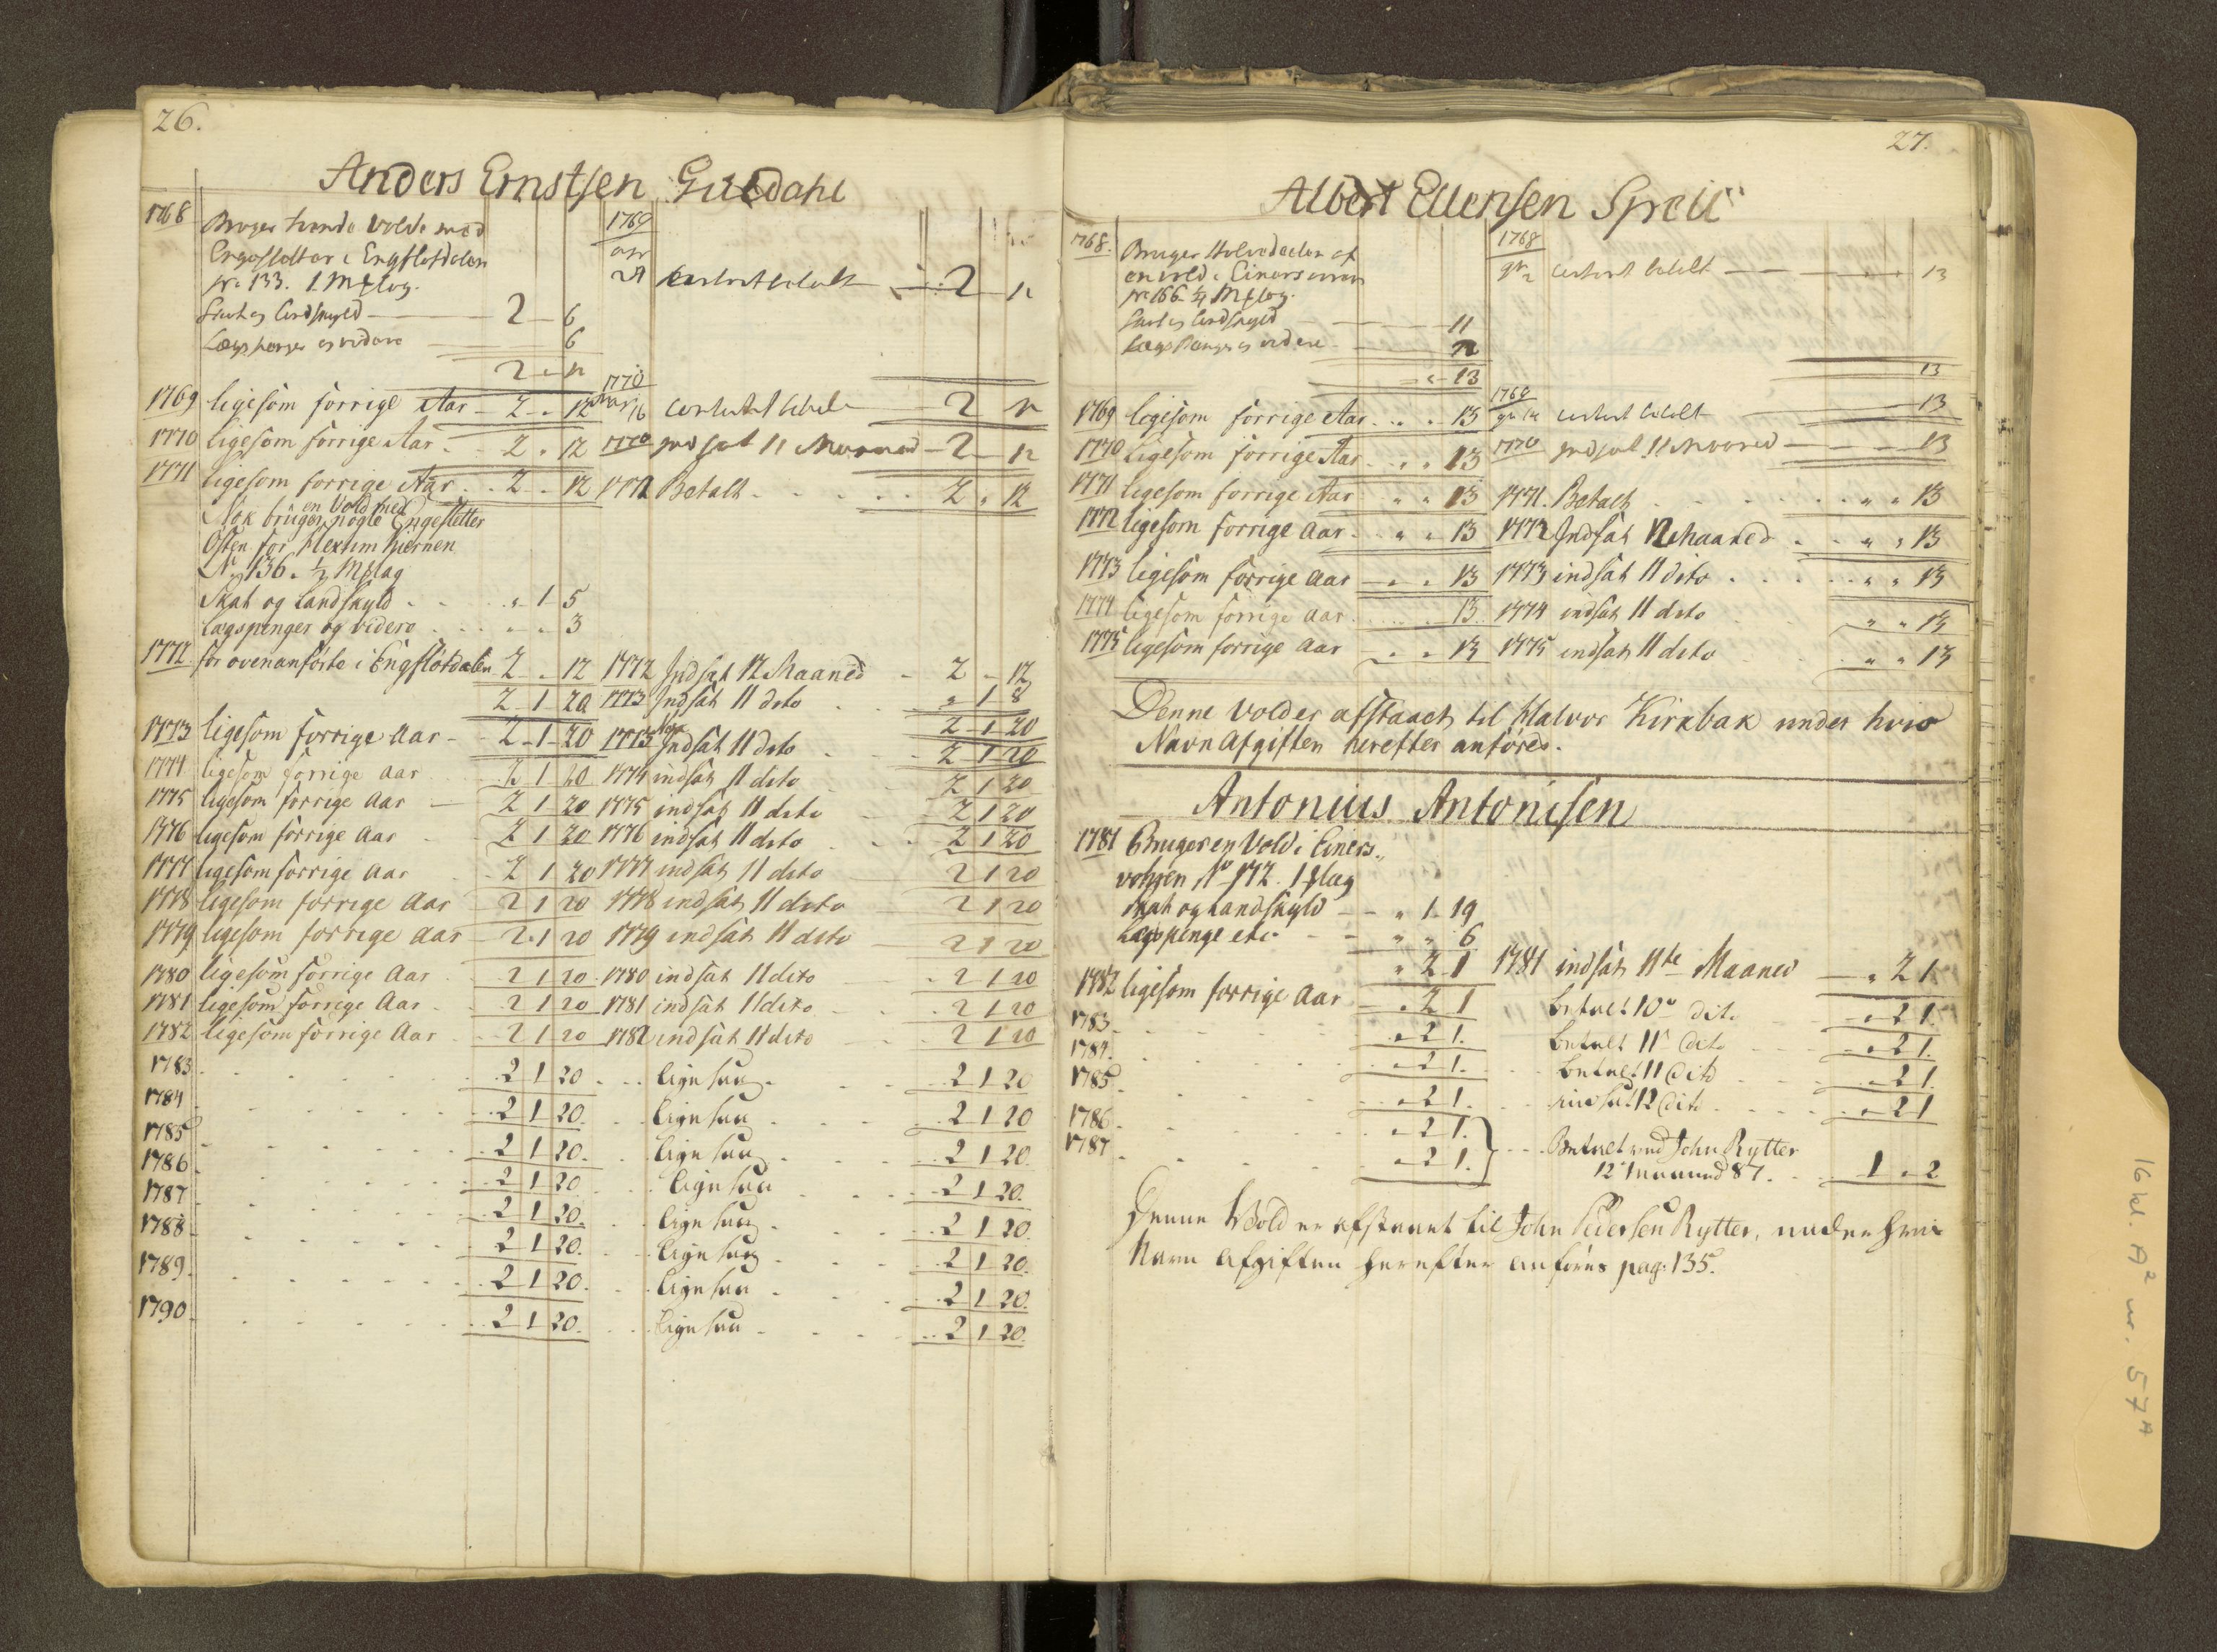 26.
Anders Ernstsen Guldahl
1768 Bruger tvende Volde med
Engesletter i Engslotdalen
No 133. 1 Mæ̶lag.
Skat og Landskyld 2 - 6
Lægspenger og videre 6
2 - 12
1769
apr
29 contant betalt 2 12
1769 ligesom forrige Aar - 2 - 12
1770
16 contant betalt 2 12
1770 ligesom forrige Aar - 2 - 12 1770 indsat 11 Maaned - 2 - 12
1771 ligesom forrige Aar - 2 - 12 1771 Betalt 2 " 12
en Vold med
Nok bruger nogle Engesletter
Østen for
No 136. ½ Mælag
Skat og Landskyld " 1 5
Lægspenger og videre " " 3
1772 for ovenanførte i Engslotdalen 2 - 12 1772 Indsat 12 Maaned - 2 - 12
2 1 20 1773 Indsat 11 dito " 1 8
2 1 20
1773 ligesom forrige Aar - 2 - 1 - 20 1773 Nok Indsat 11 dito 2 1 20
1774 ligesom forrige Aar 2 1 20 1774 indsat 11 dito 2 1 20
1775 ligesom forrige Aar 2 1 20 1775 indsat 11 dito 2 1 20
1776 ligesom forrige Aar 2 1 20 1776 indsat 11 dito 2 1 20
1777 ligesom forrige Aar 2 1 20 1777 indsat 11 dito 2 1 20
1778 ligesom forrige Aar 2 1 20 1778 indsat 11 dito 2 1 20
1779 ligesom forrige Aar 2 1 20 1779 indsat 11 dito 2 1 20
1780 ligesom forrige Aar 2 1 20 1780 indsat 11 dito 2 1 20
1781 ligesom forrige Aar 2 1 20 1781 indsat 11 dito 2 1 20
1782 ligesom forrige Aar 2 1 20 1782 indsat 11 dito 2 1 20
1783 2 1 20 ligesaa 2 1 20
1784 2 1 20 ligesaa 2 1 20
1785 2 1 20 ligesaa 2 1 20
1786 2 1 20 ligesaa 2 1 20
1787 2 1 20 ligesaa 2 1 20
1788 2 1 20 ligesaa 2 1 20
1789 2 1 20 ligesaa 2 1 20
1790 2 1 20 ligesaa 2 1 20
27.
Albert Ellensen
1768. Bruger Halvedeelen af
en vold i Einersvoren
No 166 ¼ Mælag.
Skat og Landskyld 11
Lægspenger og videre 2
" - 13
1768
contant betalt 13
13
1769 ligesom forrige Aar " " 13 contant betalt 13
1770 ligesom forrige Aar " " 13 1770 indsat 11 Maaned 13
1771 ligesom forrige Aar " " 13 1771. Betalt " " 13
1772 ligesom forrige Aar " " 13 1772 Indsat 12 Maaned " " 13
1773 ligesom forrige Aar " " 13 1773 indsat 11 dito " " 13
1774 ligesom forrige Aar 13 1774 indsat 11 dito " " 13
1775 ligesom forrige Aar " " 13 1775 indsat 11 dito " " 13
Denne Vold er afstaaet til Halvor Kirxbak under hvis
Navn Afgiften herefter anføres.
Antonius Antonisen
1781 Bruger en Vold i Einers-
vohren No 172. 1 lag
Skat og Landskyld " 1 19
Lægspenge etc " " 6
" 2 1 1781 indsat 11te Maaned " 2 1
1782 ligesom forrige Aar " 2 1 betalt 10de dito " 2 1.
1783 " 2 1. betalt 11 dito " 2 1.
1784. " 2 1. betalt 11 dito " 2 1.
1785 " 2 1. indsat 12 dito " 2 1
1786 " 2 1.
1787 " 2 1. Betalt ved John Rytter
12 Maaned 87. 1 " 2
Denne Vold er afstaaet til John Pedersen Rytter, under hvis
Navn Afgiften herefter anføres pag. 135.
16 kl. A² nr. 57A